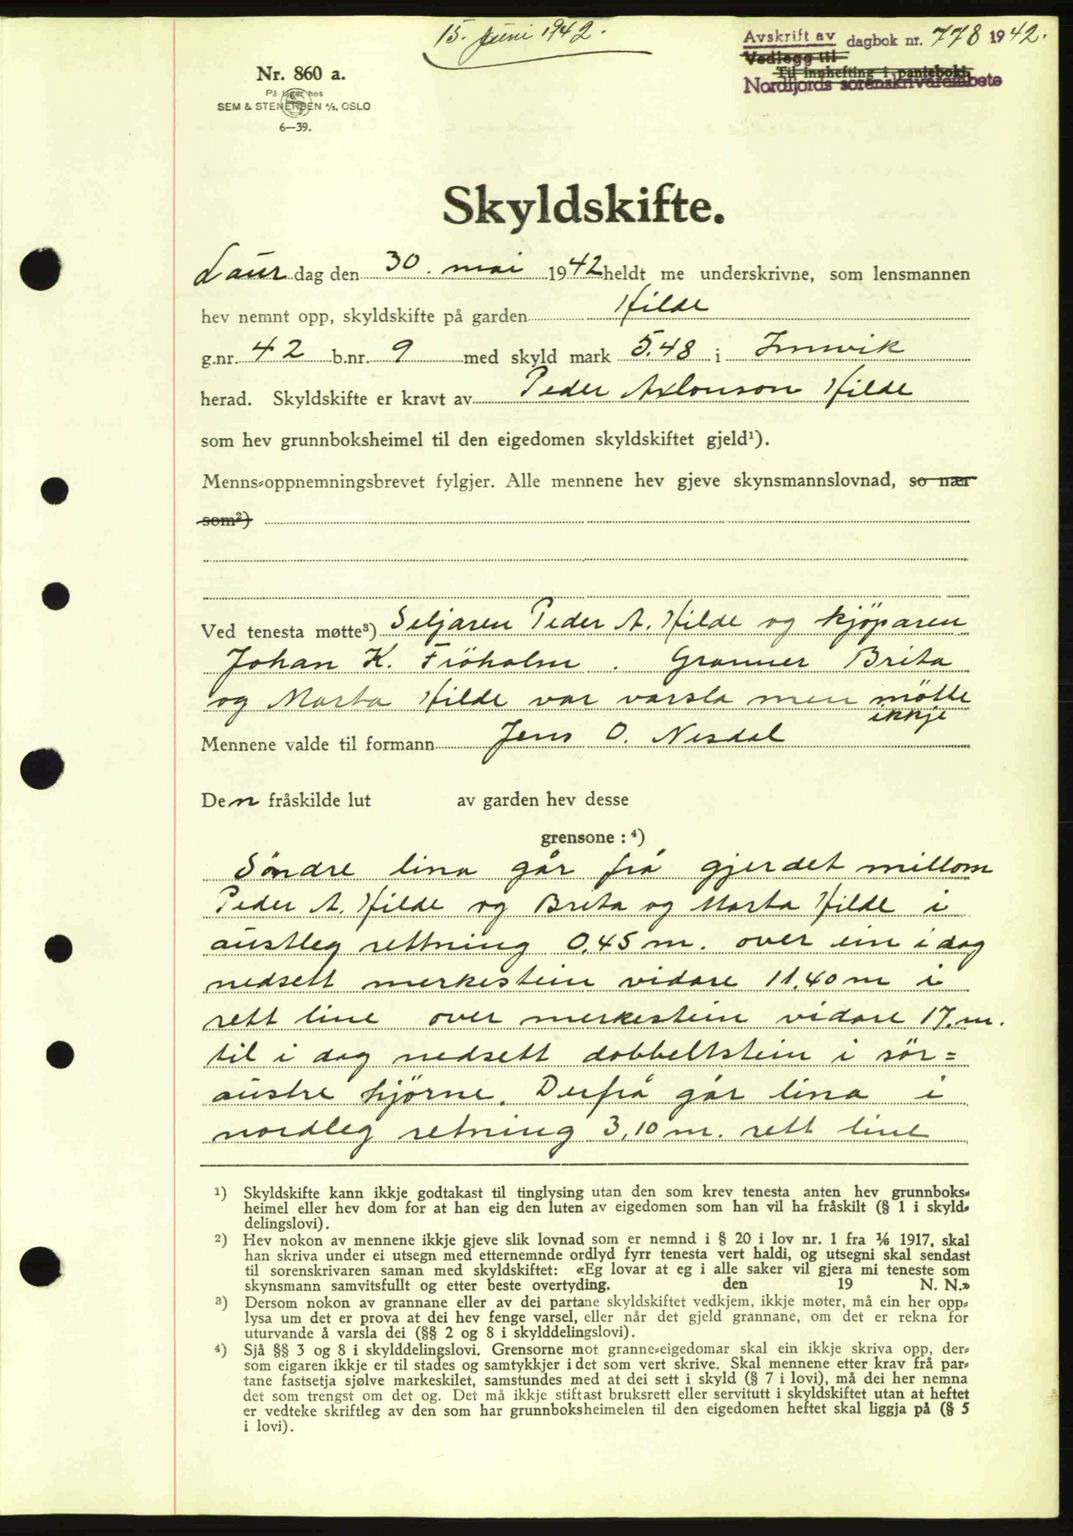 15. Juni 1942.
Avskrift av dagbok nr. 778 1942.
Vedlegg til
Til innhefting i pantebok
Nordfjords sorenskrivarembete
Nr. 860 a.
På lager hos
SEM & STENERSEN A/S, OSLO
6—39.
Skyldskifte.
Laur dag den 30. mai 1942 heldt me underskrivne, som lensmannen
hev nemnt opp, skyldskifte på garden Hilde
g.nr. 42 b.nr. 9 med skyld mark 5.48 i Innvik
herad. Skyldskifte er kravt av Peder Hilde
som hev grunnboksheimel til den eigedomen skyldskiftet gjeld¹).
Menns-oppnemningsbrevet fylgjer. Alle mennene hev gjeve skynsmannslovnad, so nær
som²)
Ved tenesta møtte³) Seljaren Peder A. Hilde og kjöparen
Johan K. Fröholm. Granner Brita
og Marta Hilde var varsla men mötte
ikkje
Mennene valde til formann Jens O. Nesdal
Den fråskilde lut av garden hev desse
grensone : ⁴)
Söndre lina går frå gjerdet millom
Peder A. Hilde og Brita og Marta Hilde i
austleg rettning 0,45 m. over ein i dag
nedsett merkestein vidare 11,40 m i
rett line over merkestein vidare 17. m.
til i dag nedsett dobbeltstein i sör=
austre hjörne. Derfrå går lina i
nordleg retning 3,10 m. rett line
¹) Skyldskifte kann ikkje godtakast til tinglysing utan den som krev tenesta anten hev grunnboks-
heimel eller hev dom for at han eig den luten av eigedomen som han vil ha fråskilt (§ 1 i skyld-
delingslovi).
²) Hev nokon av mennene ikkje gjeve slik lovnad som er nemnd i § 20 i lov nr. 1 fra ⅛ 1917, skal
han skriva under ei utsegn med etternemnde ordlyd fyrr tenesta vert haldi, og utsegni skal sendast
til sorenskrivaren saman med skyldskiftet: «Eg lovar at eg i alle saker vil gjera mi teneste som
skynsmann samvitsfullt og etter beste overtyding. den 19 N. N.»
³) Dersom nokon av grannane eller av dei partane skyldskiftet vedkjem, ikkje møter, må ein her opp-
lysa um det er prova at dei hev fenge varsel, eller når det gjeld grannane, om det er rekna for
uturvande å varsla dei (§§ 2 og 8 i skylddelingslovi).
⁴) Sjå §§ 3 og 8 i skylddelingslovi. Grensorne mot granne-eigedomar skal ein ikkje skriva opp, der-
som eigaren ikkje er til stades og samtykkjer i det som vert skrive. Skal mennene etter krav frå par-
tane fastsetja sjølve markeskilet, samstundes med at dei sett i skyld (§ 7 i lovi), må dei her nemna
det som trengst om det og. Det må ikkje stiftast bruksrett eller servitutt i skyldskiftet utan at heftet
er vedteke skriftleg av den som har grunnboksheimelen til den eigedomen heftet skal liggja på (§ 5
i lovi).